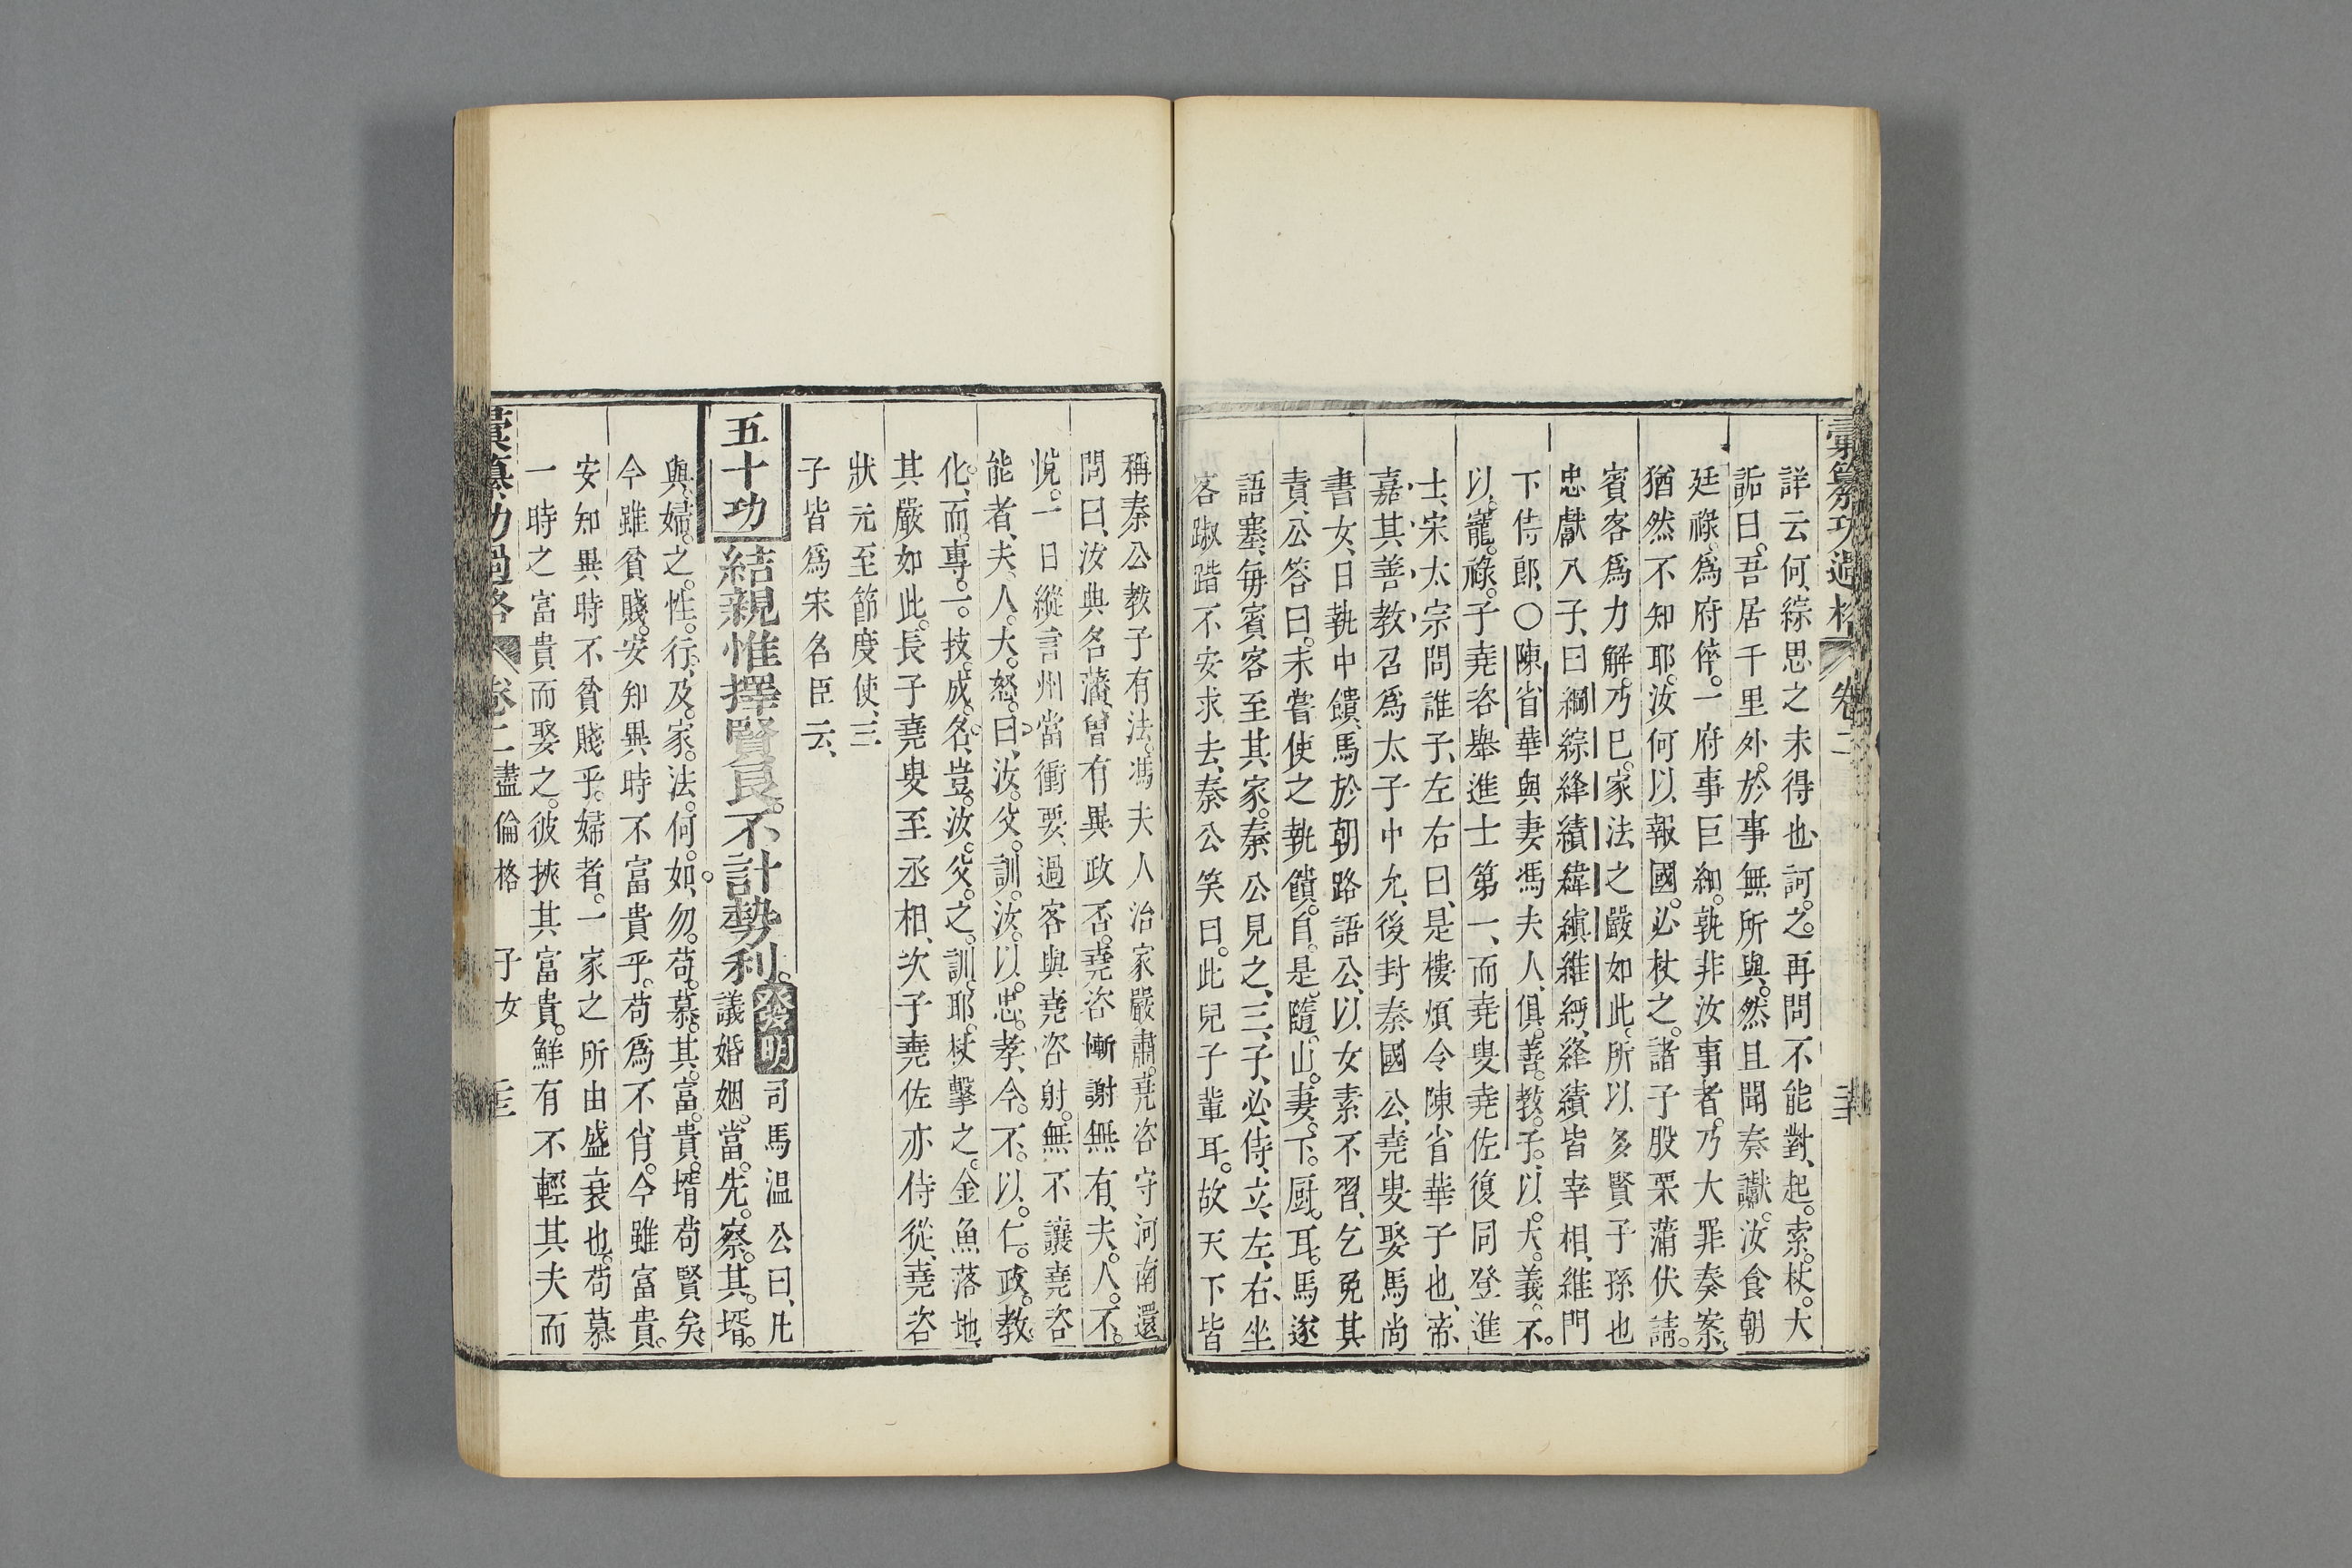 彙纂功過格 卷二
詳云何、綜思之未得也、訶之。再問不能對、起。索。杖。大
詬曰。吾居千里外。於事無所與。然且聞奏讞。汝食朝
廷祿。爲府倅。一府事巨細。孰非汝事者。乃大罪奏案。
猶然不知耶。汝何以報國。必杖之。諸子股栗蒲伏請。
賓客爲力解。乃已。家法之嚴如此。所以多賢子孫也
忠獻八子、曰綱綜絳績緯縝維緬、絳績皆宰相、維門
下侍郎、○陳省華與妻馮夫人、俱。善。教。子。以。大。義。不。
以。寵。祿。子堯咨舉進士第一、而堯叟堯佐復同登進
士、宋太宗問誰子、左右曰、是樓煩令陳省華子也、帝、
嘉其善教、召爲太子中允、後封秦國公、堯叟娶馬尚
書女、日執中饋、馬於朝路語公、以女素不習、乞免其
責、公答曰。未嘗使之執饋。自。是。隨。山。妻。下。厨。耳。馬遂
語塞、每賓客至其家。秦公見之、三子、必侍立左右、坐
客踧踖不安求去、秦公笑曰。此兒子輩耳。故天下皆
稱秦公教子有法。馮夫人治家嚴肅。堯咨守河南還
問曰、汝典名藩、曾有異政否。堯咨慚謝無有、夫。人。不。
悅。一日縱言州當衝要、過客與堯咨射。無不讓堯咨
能者、夫人。大。怒。曰、汝。父。訓。汝。以。忠。孝、今。不。以。仁。政。教。
化、而。專。一。技。成。名、豈。汝。父。之。訓。耶。杖擊之。金魚落地、
其嚴如此。長子堯叟至丞相、次子堯佐亦侍從、堯咨
狀元至節度使、三
子皆爲宋名臣云、
五十功 結親惟擇賢良。不計勢利。發明 司馬温公曰、凡
議婚姻。當。先。察。其。壻。
與。婦。之。性。行、及。家。法。何。如、勿。苟。慕。其。富。貴。壻苟賢矣、
今雖貧賤。安知異時不富貴乎。苟爲不肖。今雖富貴。
安知異時不貧賤乎。婦者。一家之所由盛衰也。苟慕
一時之富貴而娶之。彼挾其富貴。鮮有不輕其夫而
彙纂功過格 卷二 盡倫格 子女